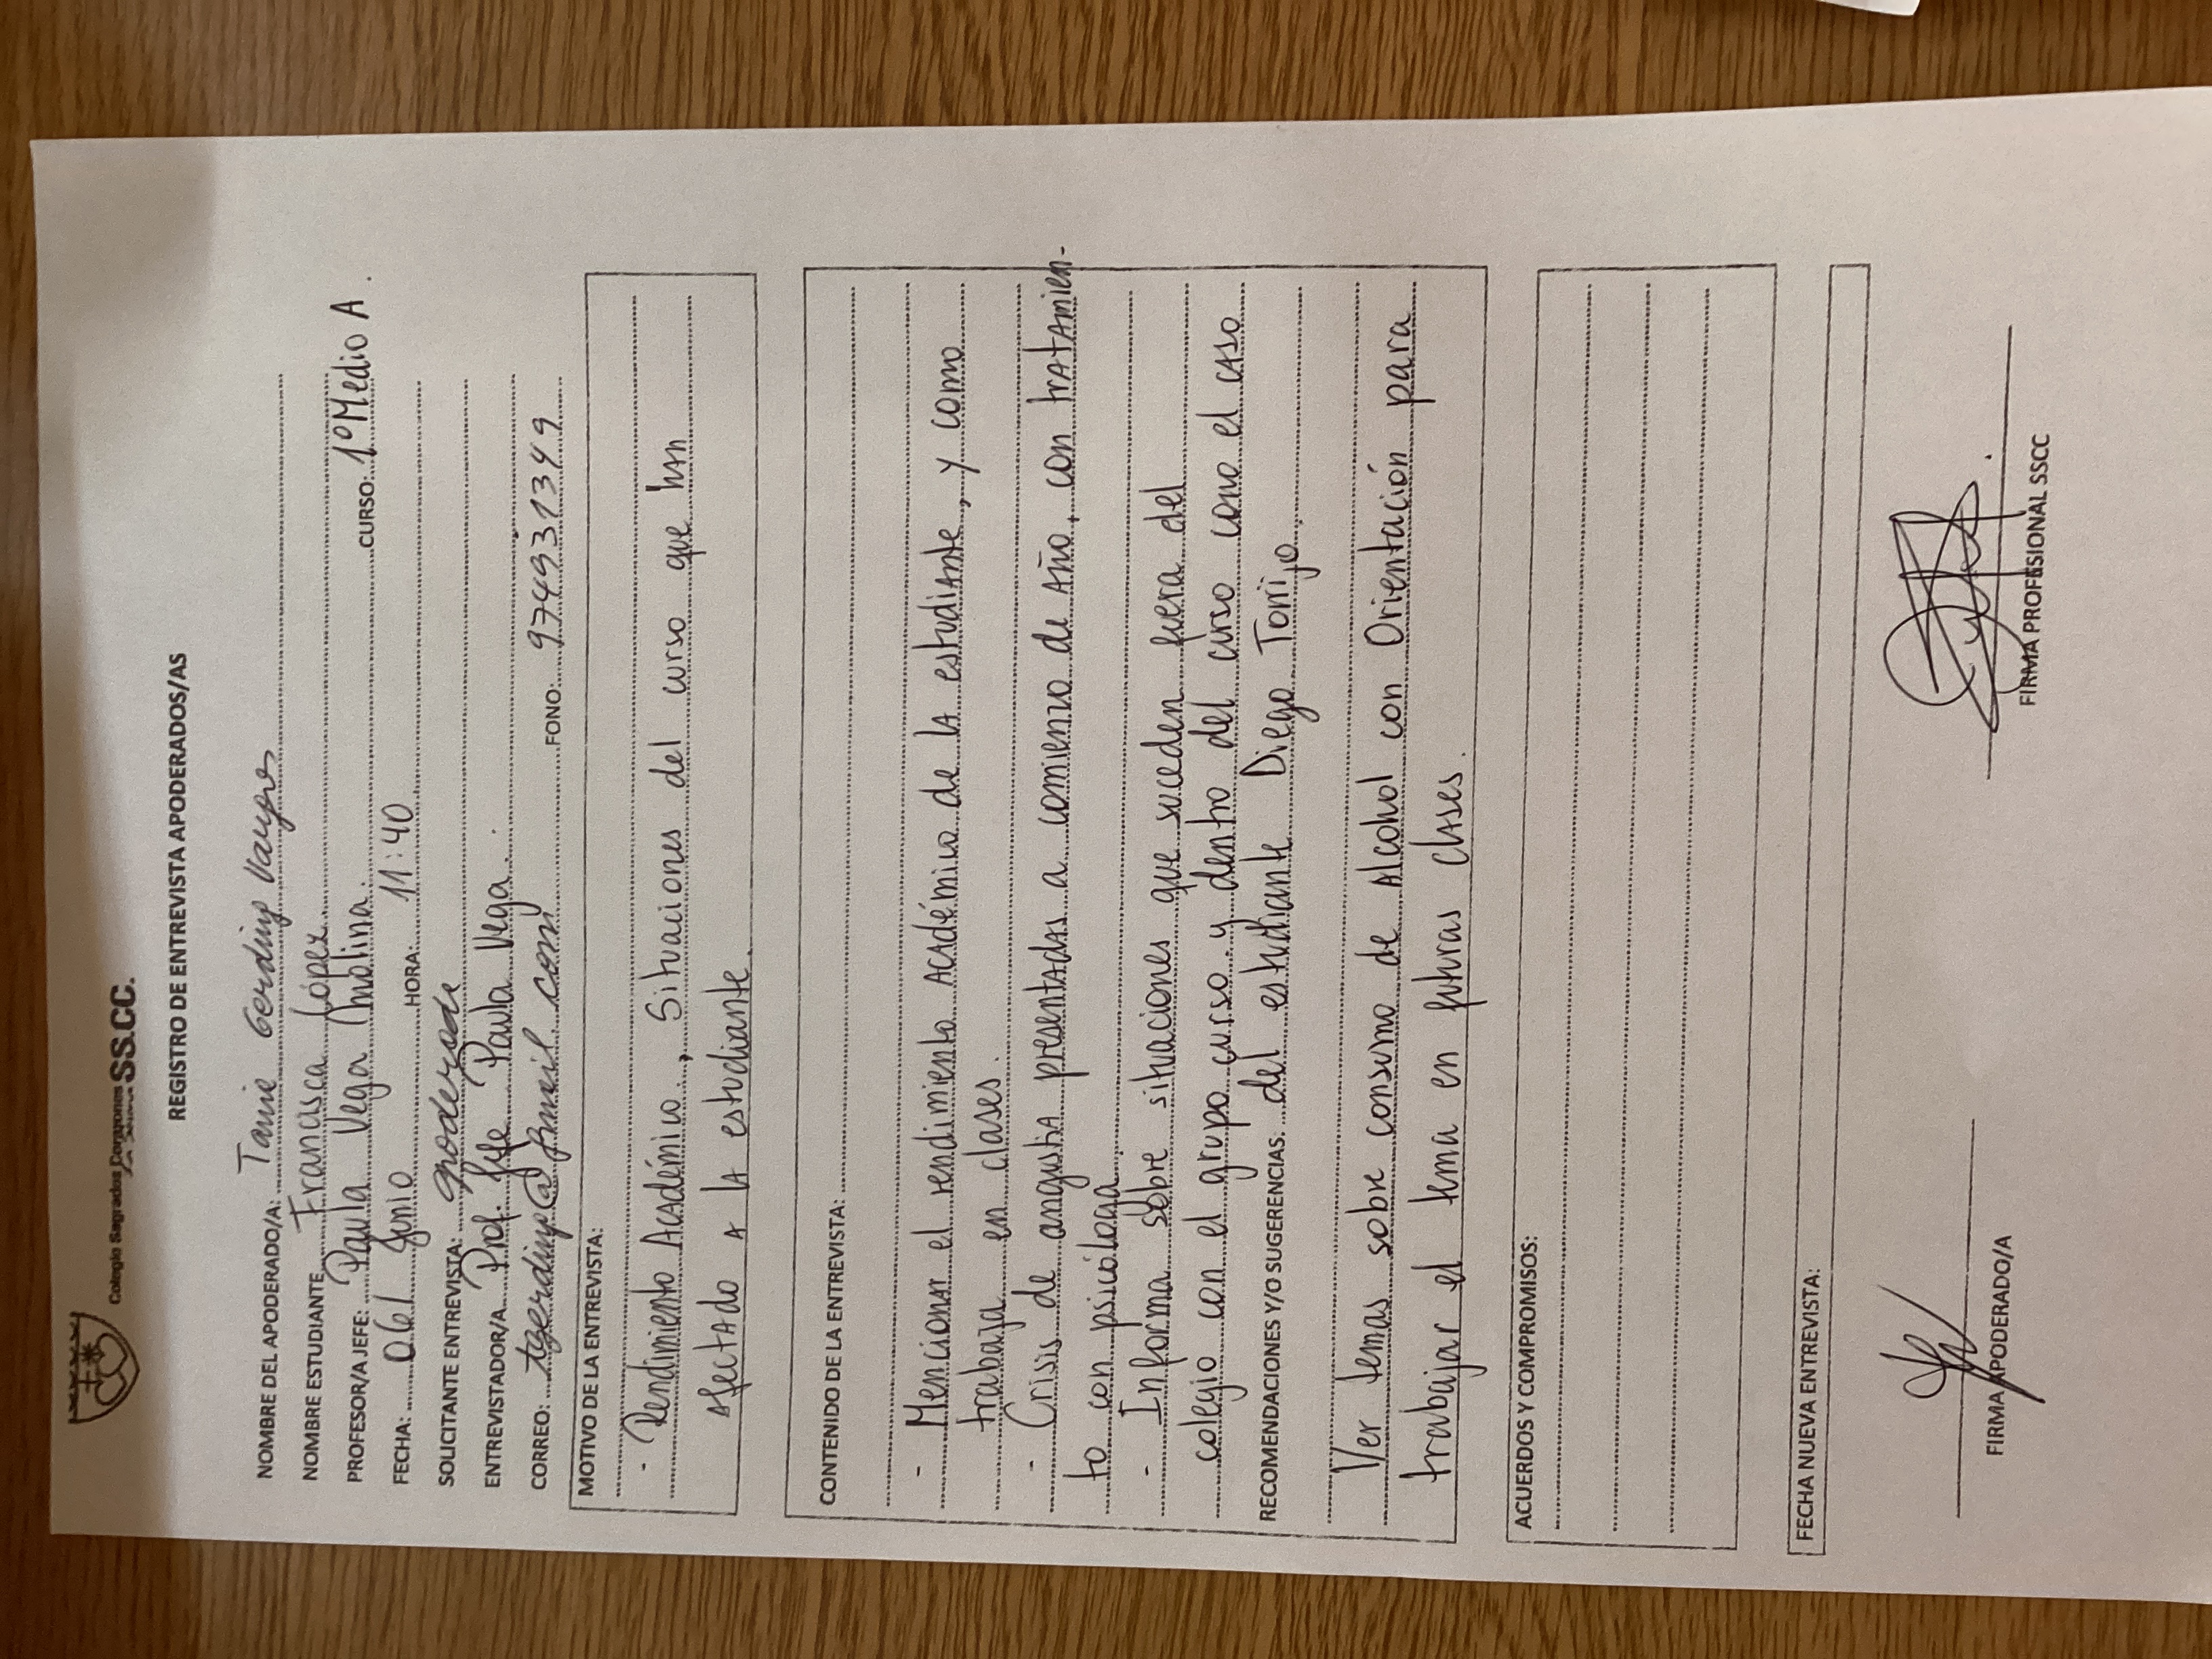 Colegio Sagrados Corazones SS.CC.
REGISTRO DE ENTREVISTA APODERADOS/AS
NOMBRE DEL APODERADO/A: Tania Gerding
NOMBRE ESTUDIANTE Francisca López
PROFESOR/A JEFE: Paula Vega Molina. CURSO: 1º Medio A.
FECHA: 06/ Junio HORA: 11:40
SOLICITANTE ENTREVISTA: apoderada
ENTREVISTADOR/A Prof. Jefe Paula Vega.
CORREO: tgerding@gmail.com FONO: 974931349
MOTIVO DE LA ENTREVISTA:
- Rendimiento Académico, Situaciones del curso que han
afectado a la estudiante.
CONTENIDO DE LA ENTREVISTA:
- Mencionar el rendimiento Académico de la estudiante, y como
trabaja en clases.
- Crisis de angustia presentadas a comienzo de Año, con tratamien-
to con psicóloga.
- Informa sobre situaciones que suceden fuera del
colegio con el grupo curso y dentro del curso como el caso
RECOMENDACIONES Y/O SUGERENCIAS: del estudiante Diego Torrijo.
Ver temas sobre consumo de Alcohol con Orientación para
trabajar el tema en futuras clases.
ACUERDOS Y COMPROMISOS:
FECHA NUEVA ENTREVISTA:
FIRMA APODERADO/A FIRMA PROFESIONAL SSCC